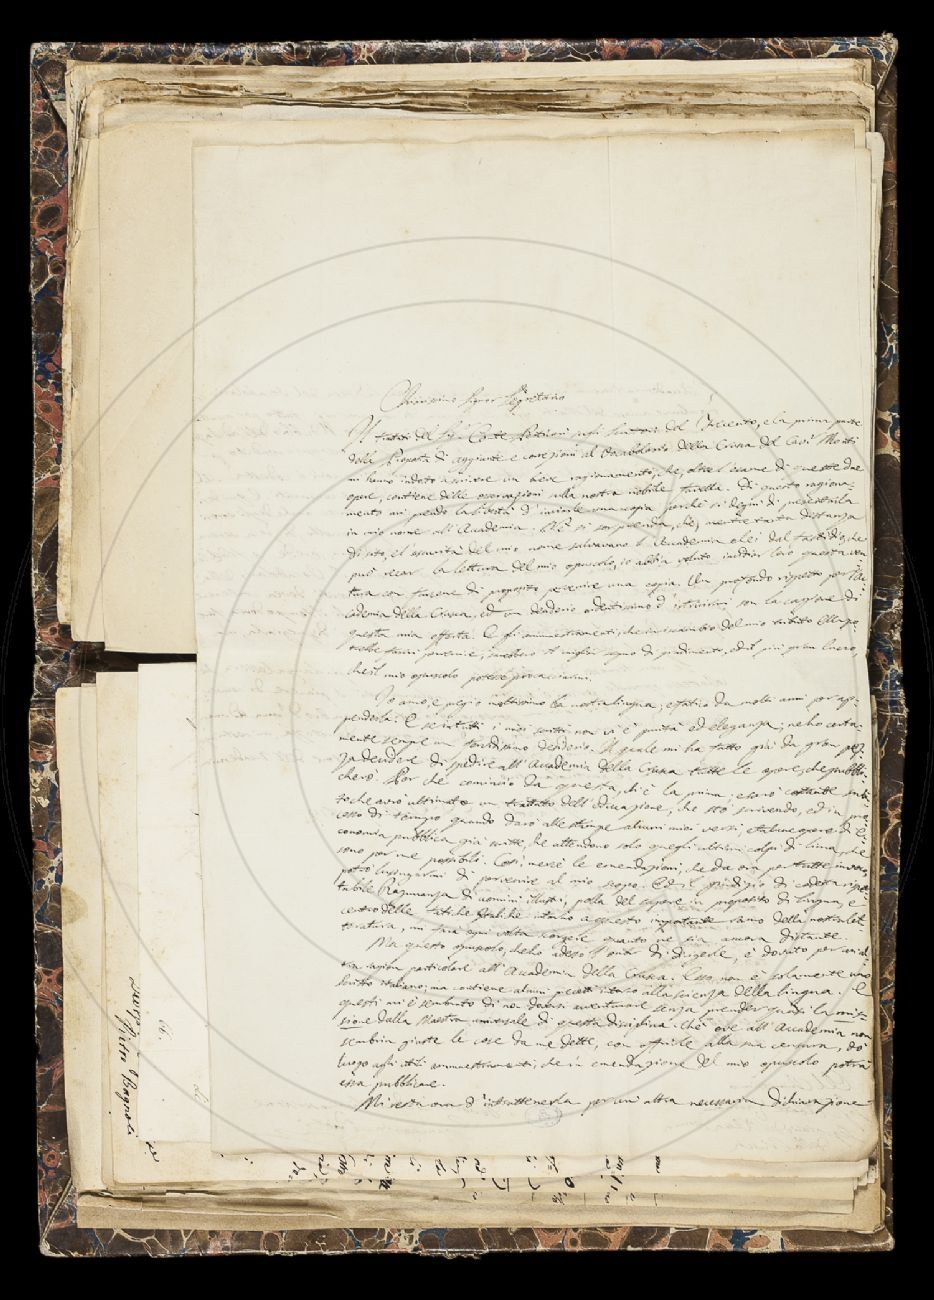 Chiarissimo Signor Segretario
Il trattato del Sig.r Conte Perticari sugli Scrittori del Trecento, e la prima parte
della Proposta di aggiunte e correzioni al Vocabolario della Crusca del Cav. Monti
mi hanno indotto a scrivere un breve ragionamento, che, oltre l'esame di queste due
opere, contiene delle osservazioni sulla nostra nobile favella. Di questo ragiona-
mento mi prendo la libertà d'inviarle una copia perché si degni di presentarla
in mio nome all'Accademia. Ella si sorprenderà, che, mentre tanta distanza
di sito, e l'oscurità del mio nome salvavano l'Accademia e lei dal fastidio, che
può recar la lettura del mio opuscolo, io abbia voluto
con pervenire una copia. Un profondo rispetto per l'Ac-
cademia della Crusca, ed un desiderio ardentissimo d'istruirmi son la cagione di
questa mia offerta. E gli ammaestramenti, che in ricambio del mio tributo Ella po-
trebbe farmi pervenire, sarebbero il miglior segno di gradimento, ed il più gran lucro,
che il mio opuscolo potesse procacciarmi.
Io amo, e pregio moltissimo la nostra lingua, e fatico da molti anni per ap-
prenderla. E se in tutti i miei scritti non vi è purità ed eleganza; ne ho certa-
mente sempre un fortissimo desiderio. Il quale mi ha fatto già da gran pez-
za decidere di spedire all'Accademia della Crusca tutte le opere, che pubbli-
cherò. Per che comincio da questa, ch'è la prima, e sarò costante
tochè avrò ultimato un trattato dell'educazione, che sto scrivendo, ed in pro-
cesso di tempo quando darò alle stampe alcuni miei versi, ed alcune opere di e-
conomia pubblica già scritte, che attendono solo quegli ultimi colpi di lima, che
sono per me possibili. Così, mercé le emendazioni, che da ora per tutte invoco,
potrò lusingarmi di pervenire al mio scopo. Ed il giudizio di codesta rispet-
tabile Ragunanza di uomini illustri, polla del sapere in proposito di lingua, e
centro delle fatiche Italiche intorno a questo importante ramo della nostra let-
teratura, mi farà ogni volta scorgere quanto ne sia ancora distante.
Ma questo opuscolo, che ho adesso l'onor di dirigerle, è dovuto per un'al-
tra ragion particolare all'Accademia della Crusca. Esso non è solamente uno
scritto italiano; ma contiene alcuni precetti intorno alla scienza della lingua. E
questi mi è sembrato di non dover avventurare senza prender quasi la mis-
sione dalla Maestra universale di questa disciplina. Chè ove all'Accademia non
sembrin giuste le cose da me dette, con offrirle alla sua censura, do
luogo agli utili ammaestramenti, che in emendazione del mio opuscolo potrà
essa pubblicare.
Mi resta ora d'intrattenerla per un'altra necessaria dichiarazione
Pietro Bagnoli